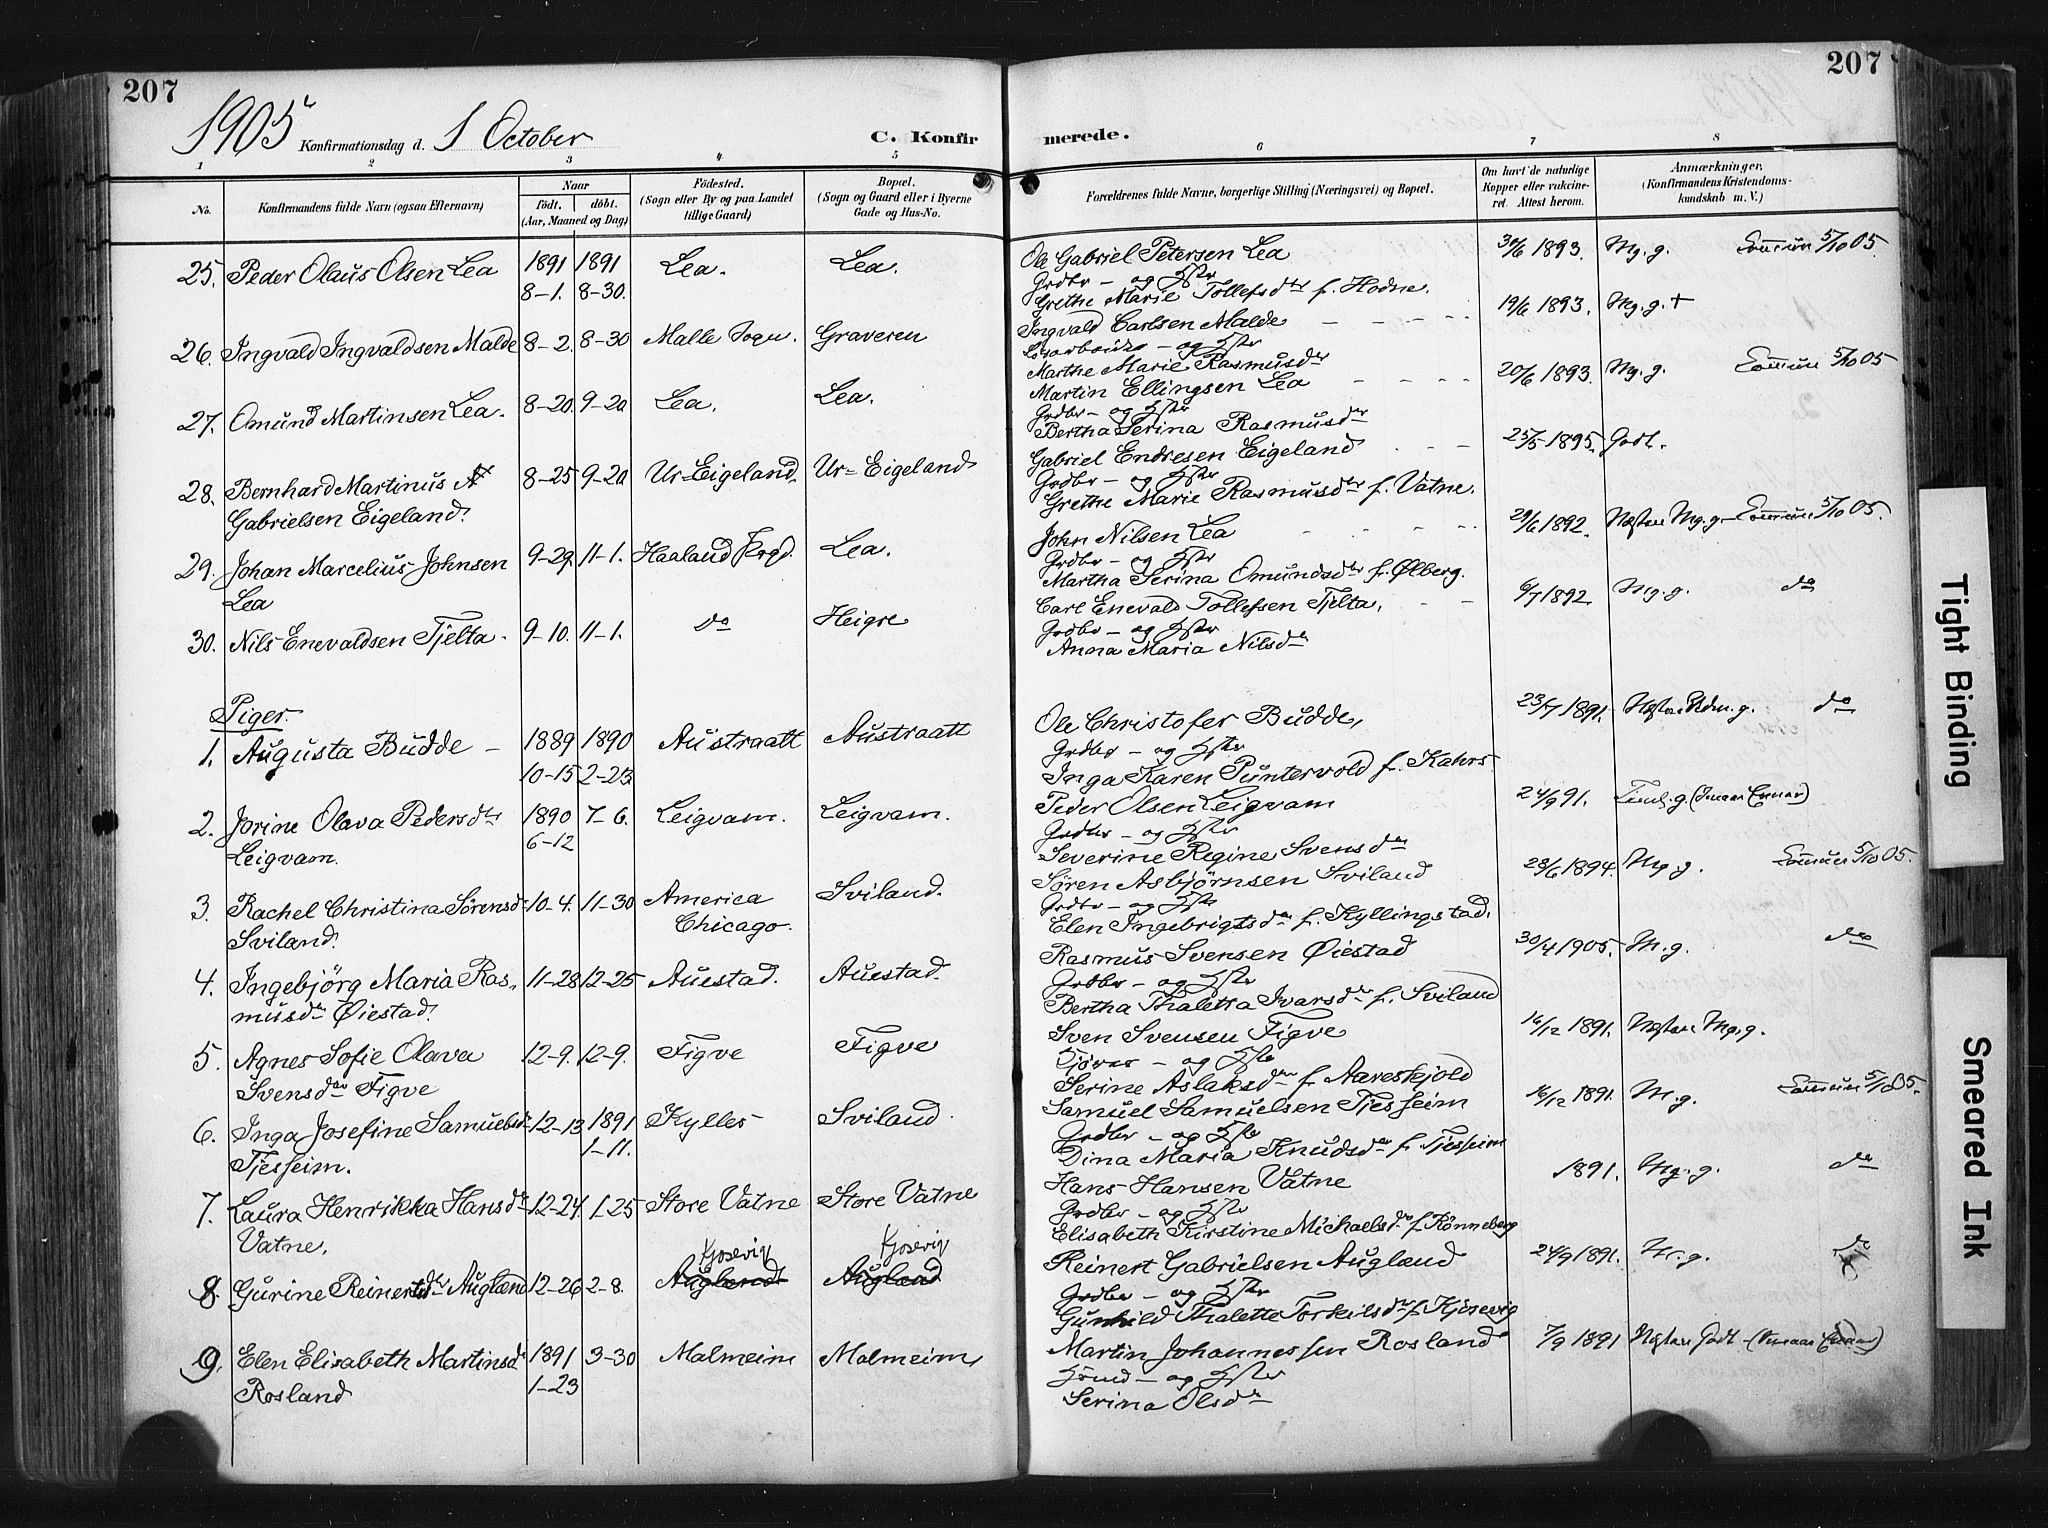 207
207
1905 Konfirmationsdag d. 1 October
C. Konfirmerede.
1 2 3 4 5 6 7 8
No.
Konfirmandens fulde Navn (ogsaa Efternavn)
Naar
Födt. döbt.
(Aar, Maaned og Dag)
Födested.
(Sogn eller By og paa Landet
tillige Gaard)
Bopæl.
(Sogn og Gaard eller i Byerne
Gade og Hus-No.
Forældrenes fulde Navne, borgerlige Stilling (Næringsvei) og Bopæl.
Om havt de naturlige
Kopper eller vakcine-
ret. Attest herom.
Anmærkninger.
(Konfirmandens Kristendoms-
kundskab m. V.)
25. Peder Olaus Olsen Lea 1891 1891 Lea. Lea.
8-1. 8-30.
Ole Gabriel Petersen Lea 30/6 1893. Mg. g. 5/10 05
Grdbr - og Hstr
Grethe Marie Tollefsdtr f. Hodne.
26. Ingvald Ingvaldsen Malde 8-2. 8-30 Malle Sogn. Graveren
Ingvald Carlsen Malde 19/6 1893. Mg. g. +
- og Hstr
Marthe Marie Rasmusdtr
27. Omund Martinsen Lea. 8-20. 9-20 Lea. Lea.
Martin Ellingsen Lea 20/6 1893. Mg. g. 5/10 05
Grdbr - og Hstr
Bertha Serina Rasmusdtr
28. Bernhard Martinus
Gabrielsen Eigeland. 8-25 9-20 Ur-Eigeland. Ur-Eigeland
Gabriel Endresen Eigeland 25/5 1895. Godt.
Grdbr - og Hstr
Grethe Marie Rasmusdtr f. Vatne.
29. Johan Marcelius Johnsen
Lea 9-29. 11-1. Haaland Prgd. Lea.
John Nilsen Lea 29/6 1892. Næsten Mg. g. 5/10 05.
Grdbr - og Hstr
Martha Serina Omundsdtr f. Ølberg.
30. Nils Enevaldsen Tjelta. 9-10. 11-1. do Heigre
Carl Enevald Tollefsen Tjelta. 6/7 1892. Mg. g. do
Grdbr - og Hstr
Anna Maria Nilsdr
Piger.
1. Augusta Budde - 1889 1890 Austraatt Austraatt
10-15 2-23
Ole Christofer Budde, 23/7 1891. do
Grdbr - og Hstr
Inga Karen Puntervold f. Kahrs
2. Jorine Olava Pedersdtr
Leigvam. 1890 7-6. Leigvam. Leigvam.
6-12
Peder Olsen Leigvam 24/9 91.
Grdbr - og Hstr
Severine Regine Svensdr
3. Rachel Christina Sörensd
Sviland. 10-4. 11-30 America
Chicago. Sviland.
Sören Asbjörnsen Sviland 28/6 1894. Mg. g. 5/10 05.
Grdbr - og Hstr
Elen Ingebrigtsdr f. Kyllingstad.
4. Ingebjörg Maria Ras-
musdr Øiestad. 11-28 12-25 Auestad. Auestad.
Rasmus Svensen Øiestad 30/4 1905. M. g. do
Grdbr - og Hstr
Bertha Thaletta Ivarsdtr f. Sviland
5. Agnes Sofie Olava
Svensdtr Figve 12-9. 12-9. Figve Figve
Sven Svensen Figve 16/12 1891. Næsten Mg. g.
- og Hstr
Serine Aslaksdtr f. Aareskjold
6. Inga Josefine Samuelsd
Tjesseim. 12-13 1891 Kylles Sviland.
1-11.
Samuel Samuelsen Tjesseim 16/12 1891. M. g. 5/10 05.
Grdbr - og Hstr
Dina Maria Knudsdr f. Tjesseim
7. Laura Henrikka Hansdr
Vatne. 12-24. 1-25 Store Vatne Store Vatne
Hans Hansen Vatne 1891. Mg. g. do
Grdbr - og Hstr
Elisabeth Kirstine Michaelsdr f. Rönneberg
8. Gurine Reinertsdtr Augland 12-26 2-8. Augland Kjosevig Augland Kjosevig
Reinert Gabrielsen Augland 24/9 1891. M. g. do
Grdbr - og Hstr
Gunhild Thalette Torkilsdtr f. Kjosevig
9. Elen Elisabeth Martinsd
Rosland 1891 3-30 Malmeim Malmeim,
1-23
Martin Johannessen Rosland 7/9 1891 Næsten Godt
- og Hstr
Serina Olsdr
Tight Binding
Smeared Ink